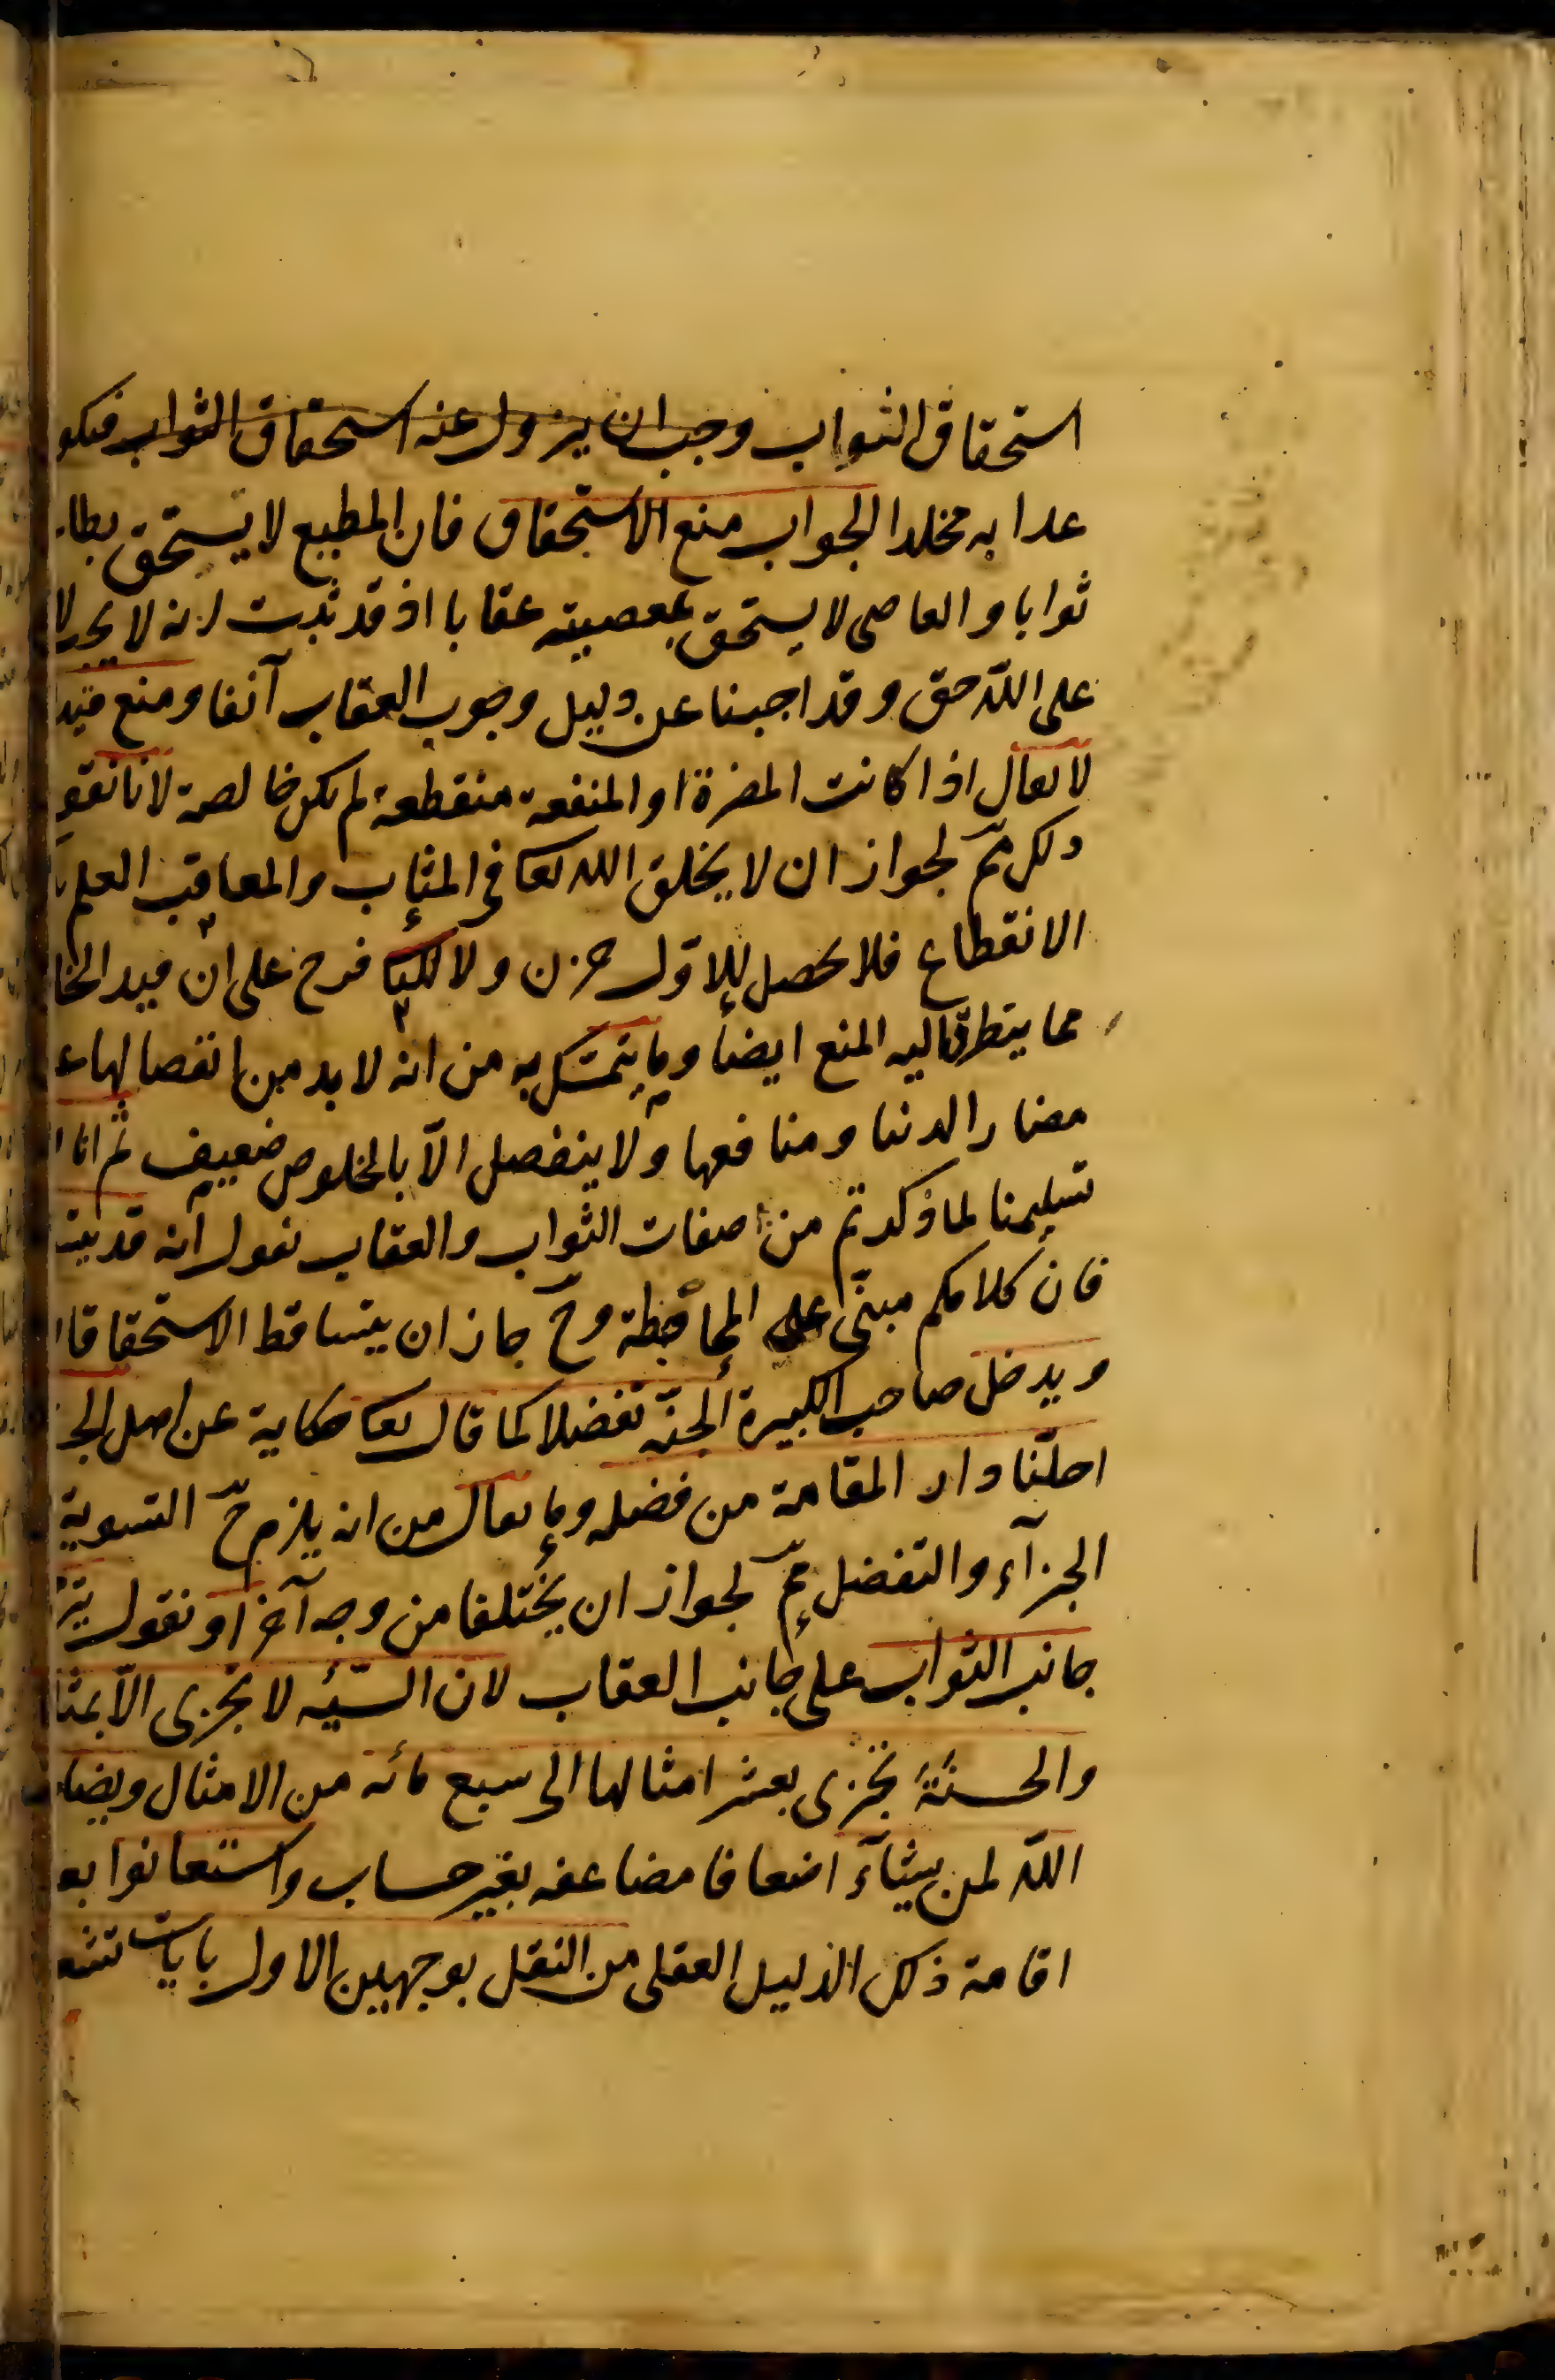 استحقاق الثواب وجب ان يزول عنه استحقاق الثواب فيكو
عدابه مخلدا الجواب منع الاستحقاق فان المطيع لا يستحق بطا
ثوابا والعاصى لا يستحق بمعصيته عقابا اذ قد ثبت انه لا يجب لا
على اللّه حق وقد اجبنا عن دليل وجوب العقاب آنفا ومنع قيد
لا يعال اذا كانت المضرة او المنفعة منقطعة لم يكن خالصة لانا نقو
ذلك مم لجواز ان لا يخلق الله تعا فى المثاب والمعاقب العلم
الانقطاع فلا يحصل للاوّل حزن ولا للثا فرح على ان قيد الخا
مما يتطرق اليه المنع ايضا وما يتمسك به من انه لا بد من انفصالها ع
مضار الدنيا ومنافعها ولا ينفصل الّا بالخلوص ضعيف ثم انا
تسليمنا لما ذكرتم من صفات الثواب والعقاب نقول انه قد
فان كلامكم مبنّى على المحابطة وحّ جاز ان يتساقط الاستحقاقا
ويدخل صاحب الكبيرة الجنّة تفضلا كما قال تعا حكاية عن اهل الج
احلّنا دار المقامة من فضله وما يعال من انه يلزم حّ التسوية
الجزآء والتفضل ممّ لجواز ان يختلفا من وجه آخر او نقول
جانب الثواب على جانب العقاب لان السّيئه لا تجزى الّا بمثا
والحسنة تجزى بعشر امثالها الى سبع مائه من الامثال ويضا
اللّه لمن يشآء اضعافا مضاعفه بغير حساب واستعانوا بع
اقامة ذلك الدليل العقلى من النقل بوجهين الاول بايات تشع